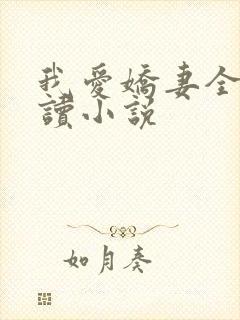 我愛嬌妻全
讀小説
如月奏